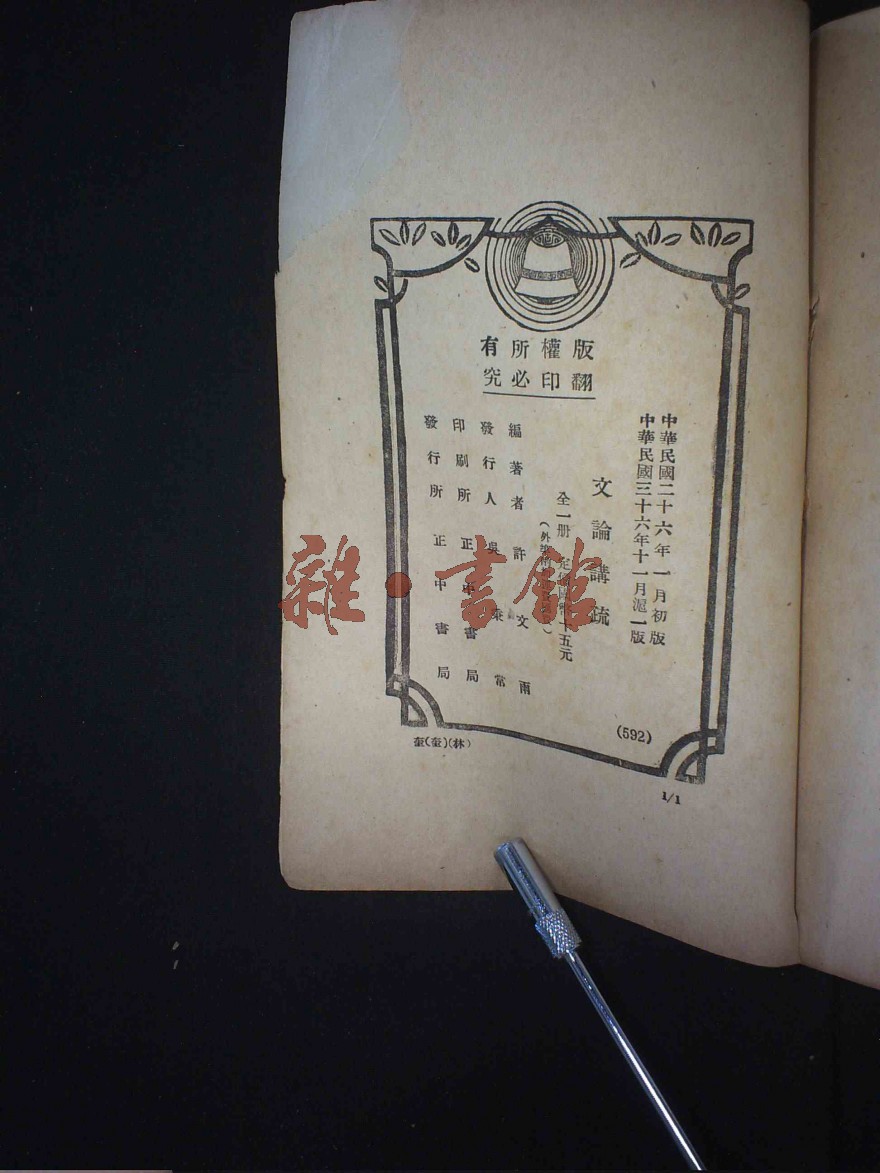 版權所有
翻印必究
中華民國二十六年一月初版
中華民國三十六年十一月滬一版
文論講疏
全一冊 定價國幣 十五元
(外 )
編著者 許文雨
發行人 吳秉常
印刷所 正中書局
發行所 正中書局
(592)
(林)
1/1
雜·書館